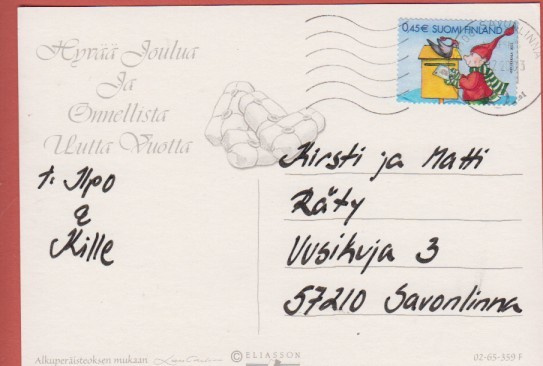 Hyvää Joulua
Ja
Onnellista
Uutta Vuotta
t: Ilpo
&
Kille
0,45€ SUOMI FINLAND
Kirsti ja Matti
Räty
Uusikuja 3
57210 Savonlinna
Alkuperäisteoksen mukaan
© ELIASSON
02-65-359 F